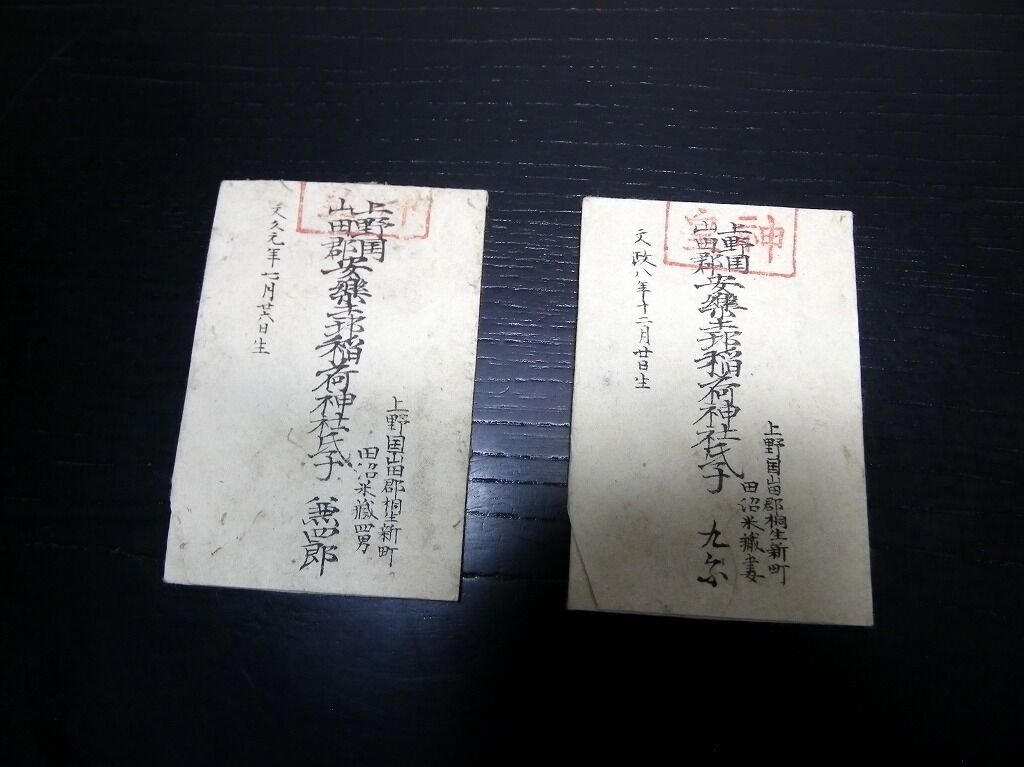 神皇
上野国山田郡桐生新町
田沼米藏妻
上野国
山田郡
安樂土邨稲荷神社氏子
文政八年十二月廿日生
神
上野国山田郡桐生新町
田沼米藏四男
上野国
山田郡
安樂土邨稲荷神社氏子 兼四郎
文久元年七月廿六日生